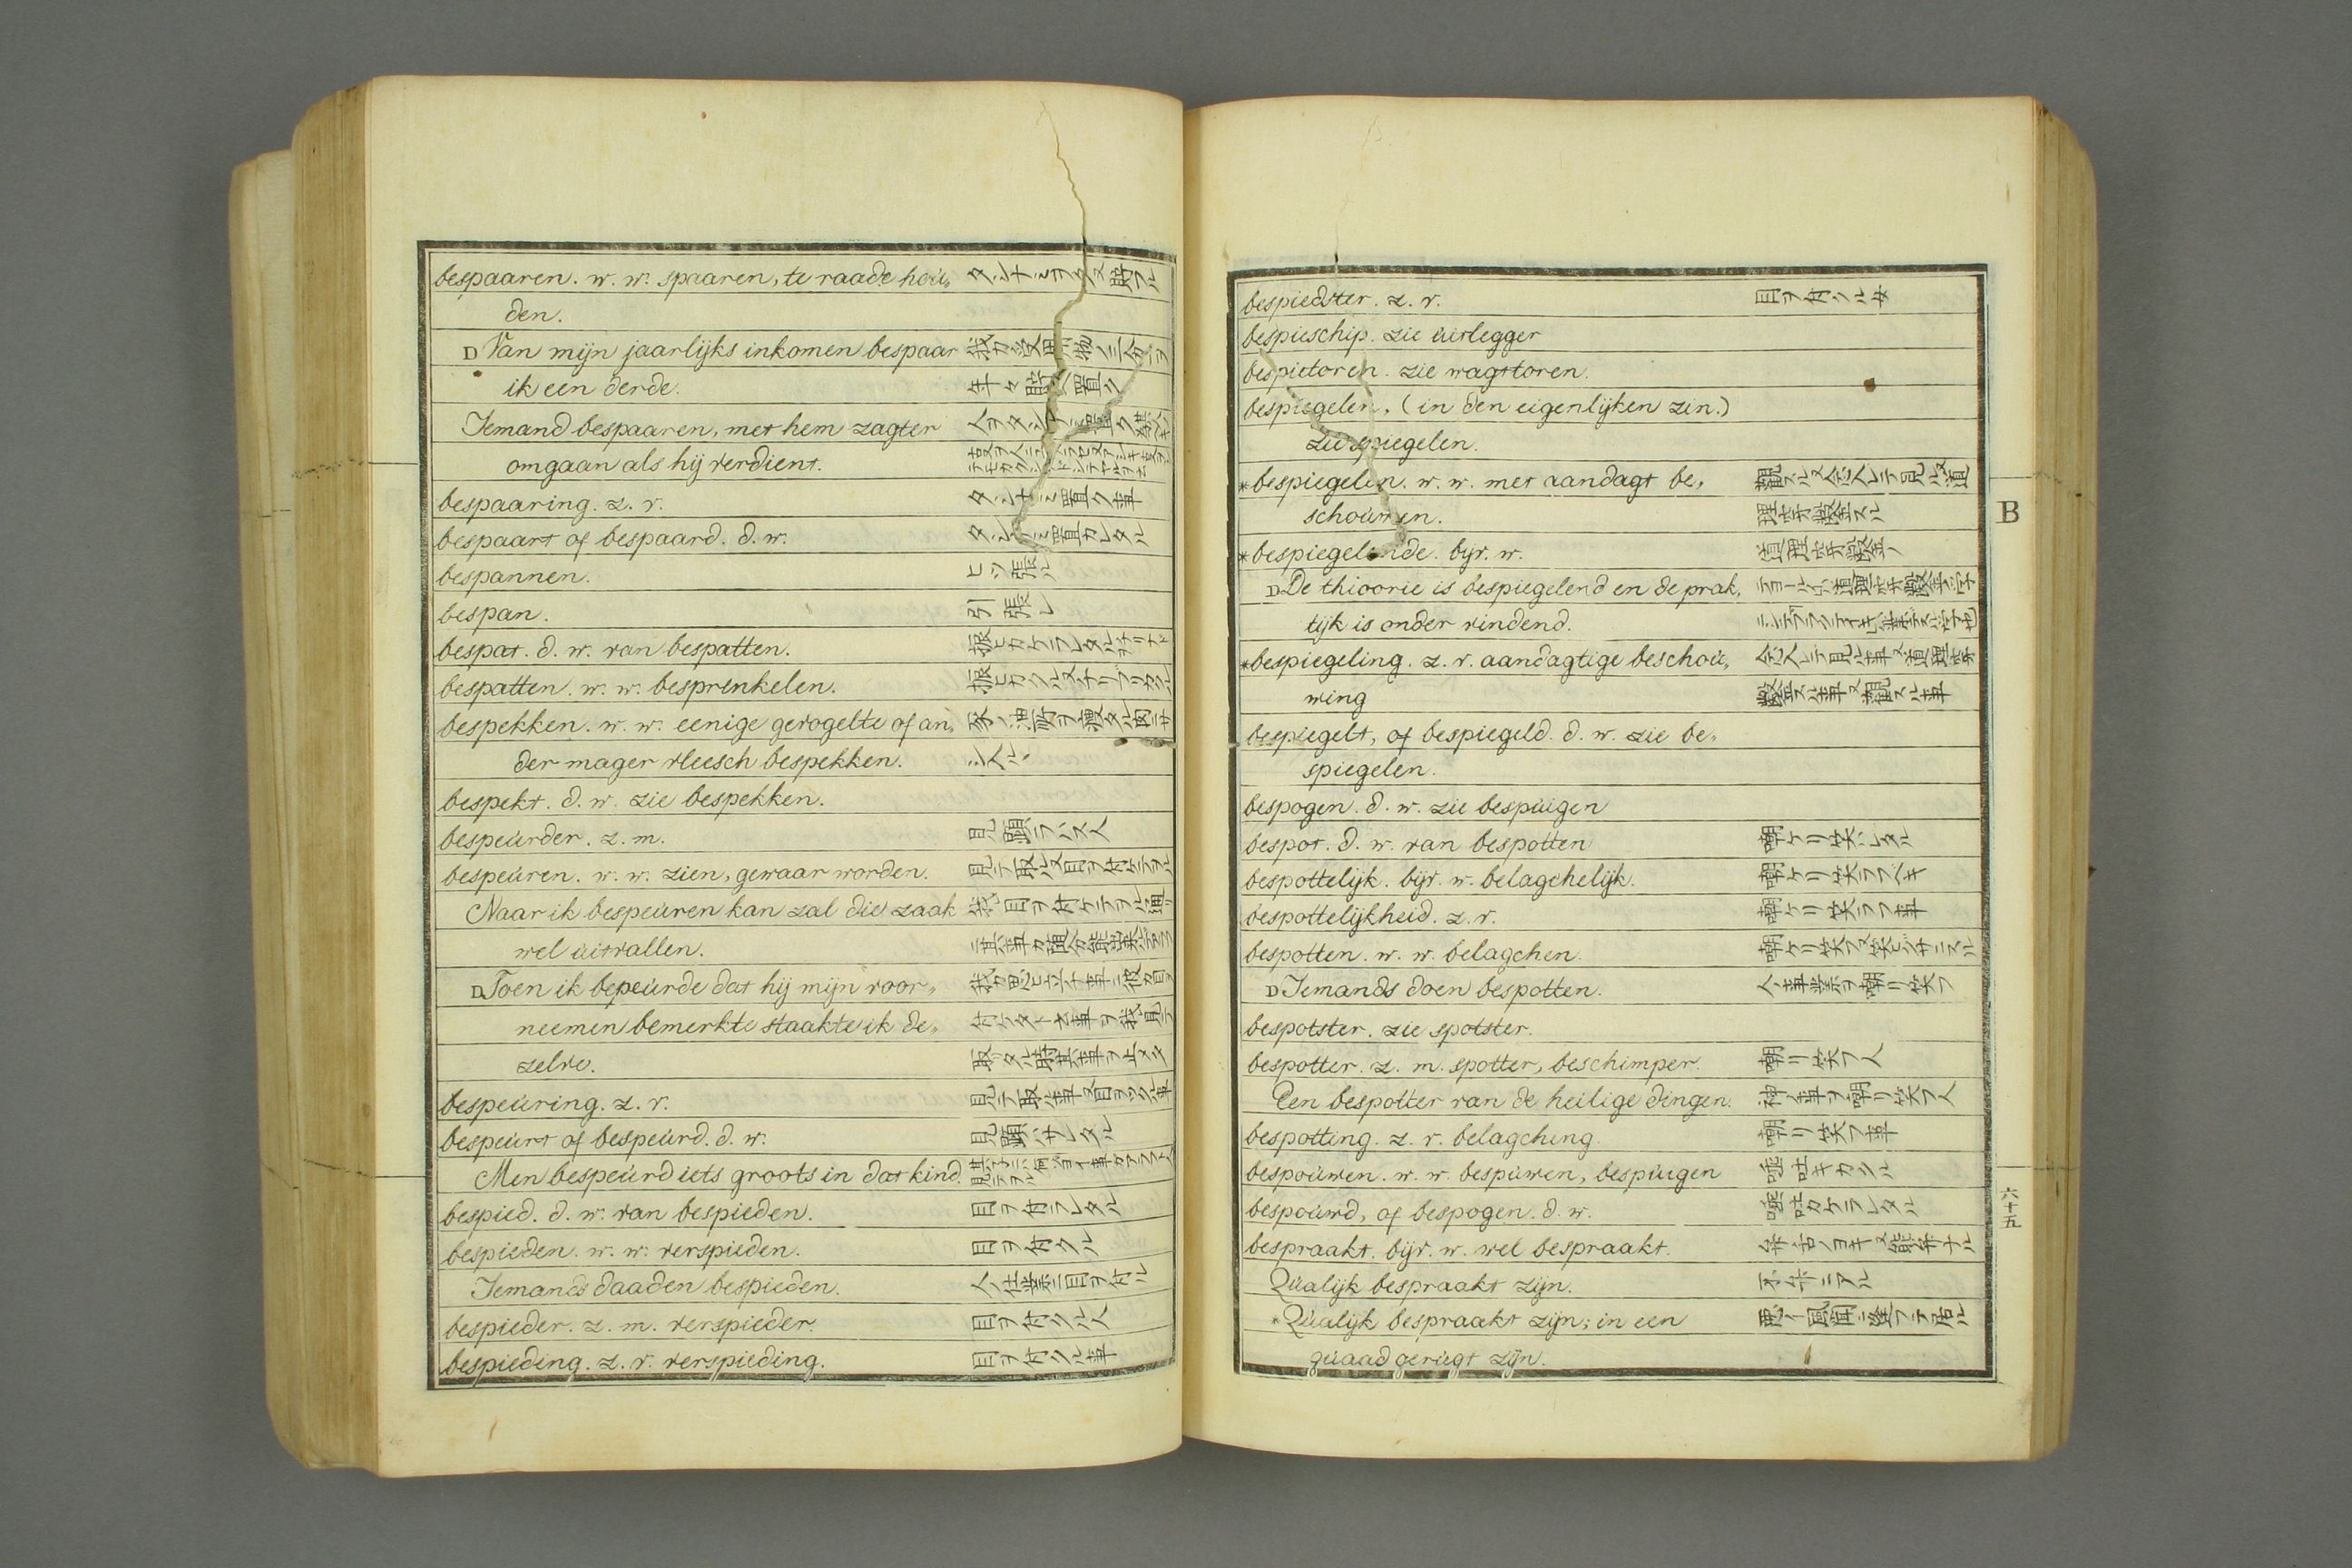 bespaaren. w. w. spaaren, te raade hoú„ タシナミヲク又貯フル
den.
D Van mijn jaarlijks inkomen bespaar 我カ受用物ノ三分一ヲ
ik een derde. 年々貯へ置ク
Iemand bespaaren, met hem zagter
omgaan als hij verdient.
bespaaring. z. v. タシナミ置ク事
bespaart of bespaard. d. w. タシナミ置カレタル
bespannen. ヒツ張ル
bespan. 引張レ
bespat. d. w. van bespatten.
bespatten. w. w. besprenkelen.
bespekken. w. w. eenige gevogelte of an„
der mager vleesch bespekken. シ入ル
bespekt. d. w. zie bespekken.
bespeúrder. z. m. 見顕ラハス人
bespeúren. w. w. zien, gewaar worden. 見テ取ル又目ヲ付ケテヲル
Naar ik bespeúren kan zal die zaak 我目ヲ付ケテヲル通リ
wel úitvallen.
D Toen ik bepeúrde dat hij mijn voor„ 我カ思ヒ立ノ事ニ彼カ目ヲ
neemen bemerkte staakte ik de„ 付ケタト云事ヲ我見テ
zelve. 取ツタル時其事ヲ止メタ
bespeúring. z. v. 見テ取ル事又目ヲツクル事
bespeúrt of bespeúrd. d. w. 見顕ハサレタル
Men bespeúrd iets groots in dat kind.
bespied. d. w. van bespieden. 目ヲ付ラレタル
bespieden. w. w. verspieden. 目ヲ付クル
Iemands daaden bespieden. 人ノ仕業ニ目ヲ付ル
bespieder. z. m. verspieder. 目ヲ付クル人
bespieding. z. v. verspieding. 目ヲ付クル事
bespiedster. z. v. 目ヲ付クル女
bespieschip. zie úitlegger
bespietoren. zie wagttoren.
bespiegelen, (in den eigenlijken zin.)
zie spiegelen.
*bespiegelen. w. w. met aandagt be„ 観スル又念入レテ見ル又道
schoúwen. 理ヲ穿鑿スル
*bespiegelende. bijv. w. 道理穿鑿ノ
D De thioorie is bespiegelend en de prak„
tijk is onder vindend.
*bespiegeling. z. v. aandagtige beschoú„ 念入レテ見ル事又道理穿
wing 鑿スル事又観スル事
bespiegelt, of bespiegeld. d. w. zie be„
spiegelen.
bespogen. d. w. zie bespúigen
bespot. d. w. van bespotten 嘲ケリ笑ハレタル
bespottelijk. bijv. w. belagchelijk. 嘲ケリ笑ラフベキ
bespottelijkheid. z. v. 嘲ケリ笑ラフ事
bespotten. w. w. belagchen.
D Iemands doen bespotten. 人ノ事業ヲ嘲リ笑フ
bespotster. zie spotster.
bespotter. z. m. spotter, beschimper. 嘲リ笑フ人
Een bespotter van de heilige dingen. 神ノ事ヲ嘲リ笑フ人
bespotting. z. v. belagching. 嘲リ笑フ事
bespoúwen. w. w. bespúwen, bespúugen 唾吐キカクル
bespoúwd, of bespogen. d. w. 唾吐カケラレタル
bespraakt. bijv. w. wel bespraakt. 弁舌ノヨキ又能弁ナル
Qúalijk bespraakt zijn. 不弁ニアル
*Qúalijk bespraakt zijn; in een 悪ク風聞ニ逢フテ居ル
qúaad gerúgt zijn.
B
六十五